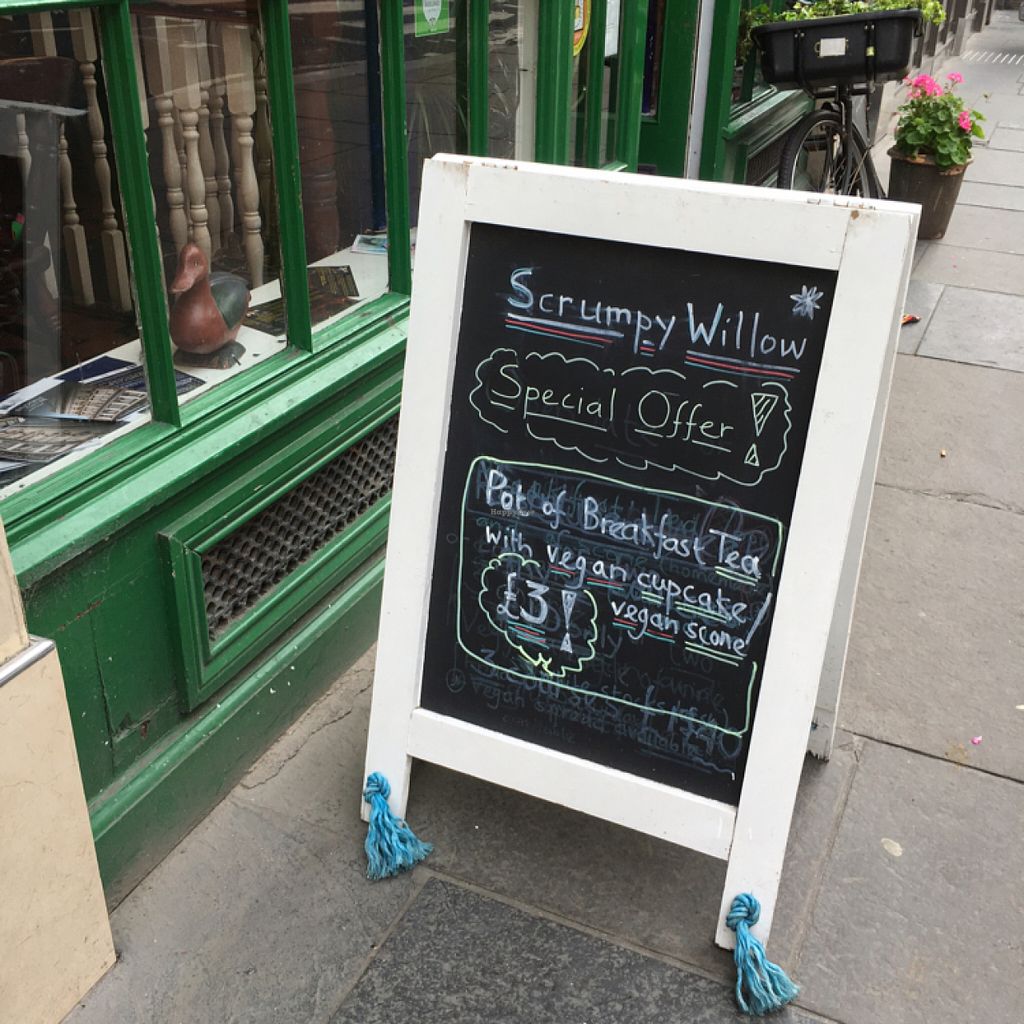 Scrumpy Willow
Special Offer!
Pot of Breakfast Tea
with vegan cupcake/
vegan scone!
£3!